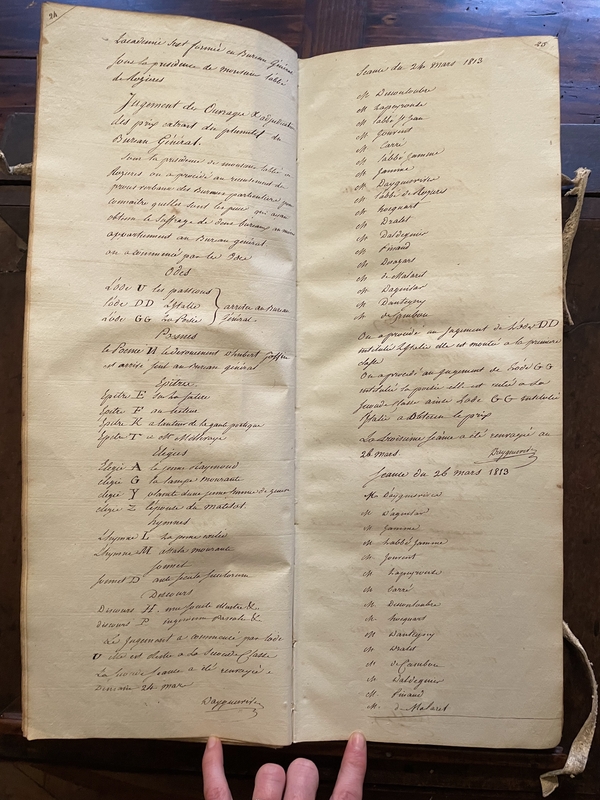 24
L'academie s'est formée en Bureau Général
sous la présidence de monsieur l'abbé
de Rozieres
Jugement des Ouvrages & adjudication
des prix extrait du plumitif du
Bureau Général.
Sous la présidence de monsieur l'abbé de
Rozieres on a procédé au recensement des
procès verbaux des Bureaux particuliers pour
connaitre quelles sont les pieces qui ayant
obtenu le suffrage de deux bureaux au moins
appartiennent au Bureau général
on a commencé par les Odes
Odes
L'ode U les passions
l'ode DD L'Italie
L'ode GG La Poësie
arrivées au Bureau
Général.
Poemes
le Poeme N le dévouement d'hubert Goffin
est arrivé seul au Bureau général
Epitres
Epitre E Sur la
Epitre F au
Epitre K a l'auteur de la gaule poëtique
Epitre T a Mr
Elégies
Elégie A le jeune Raymond
elégie G la lampe mourante
elégie Y
elégie Z l'épouse de
hymnes
L'hymne L La jeune
L'hymne M attala mourante
Sonnet
Sonnet D
Discours
Discours H une foule illustre &.
discours P ingenium &
Le Jugement a commencé par l'ode
U elle est à la Seconde Classe
La Seconde Séance a été renvoyée a
24 mars
Dayguesvives
25
Seance du 24 mars 1813
M Desventoubre
M Lapeyrouse
M l'abbé St Jean
M Jouvent
M Carré
M l'abbé Jamme
M Jamme
M Dayguesvives
M l'abbé de Rozieres
M hocquart
M Dralet
M Daldeguier
M Pinaud
M
M de Malaret
M Daguilar
M Dantigny
M de Cambon
On a procédé au jugement de l'ode DD
intitulée L'Italie elle est montée a la premiere
classe
On a procédé au Jugement de l'ode GG
intitulée la poësie elle est restée a la
Seconde Classe ainsi L'ode GG intitulée
Italie a obtenu le prix
La Troisieme Séance a été renvoyée au
26 mars.
Dayguesvives
Seance du 26 mars 1813
M Dayguesvives
M Daguilar
M Jamme
M L'abbé Jamme
M Jouvent
M Lapeyrouse
M Carré
M Desventoubre
M hocquart
M Dantigny
M Dralet
M de Cambon
M Daldeguier
M Pinaud
M de Malaret